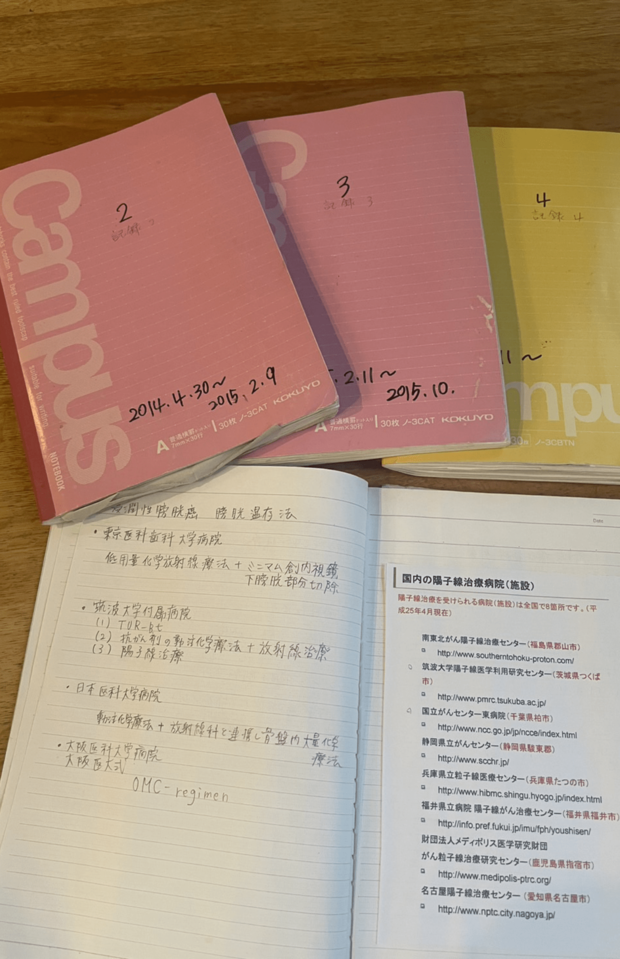 Campus
NOTEBOOK
2
記録 2
2014.4.30〜
2015.2.9
A 普通横罫
7mm×30行
30枚 ノ-3CAT KOKUYO
Ca
3
記録 3
2.11〜
2015.10.
A 普通横罫
7mm×30行
30枚 ノ-3CAT KOKUYO
4
記録 4
11〜
mpu
ノ-3CBTN
潤性膀胱癌 膀胱温存法
・東京医科歯科大学病院
低用量化学放射線療法+ミニマム創内視鏡
下膀胱部分切除
・筑波大学付属病院
(1) TUR-Bt
(2) 抗がん剤の動注化学療法+放射線治療
(3) 陽子線治療
・日本医科大学病院
動注化学療法+放射線科と連携し骨盤内大量化学
療法
・大阪医科大学病院
大阪医大式
OMC-regimen
Date
国内の陽子線治療病院(施設)
陽子線治療を受けられる病院(施設)は全国で8箇所です。(平
成25年4月現在)
南東北がん陽子線治療センター(福島県郡山市)
http://www.southerntohoku-proton.com/
筑波大学陽子線医学利用研究センター(茨城県つくば
市)
http://www.pmrc.tsukuba.ac.jp/
国立がんセンター東病院(千葉県柏市)
http://www.ncc.go.jp/jp/ncce/index.html
静岡県立がんセンター(静岡県駿東郡)
http://www.scchr.jp/
兵庫県立粒子線医療センター(兵庫県たつの市)
http://www.hibmc.shingu.hyogo.jp/index.html
福井県立病院 陽子線がん治療センター(福井県福井市)
http://info.pref.fukui.jp/imu/fph/youshisen/
財団法人メディポリス医学研究財団
がん粒子線治療研究センター(鹿児島県指宿市)
http://www.medipolis-ptrc.org/
名古屋陽子線治療センター(愛知県名古屋市)
http://www.nptc.city.nagoya.jp/